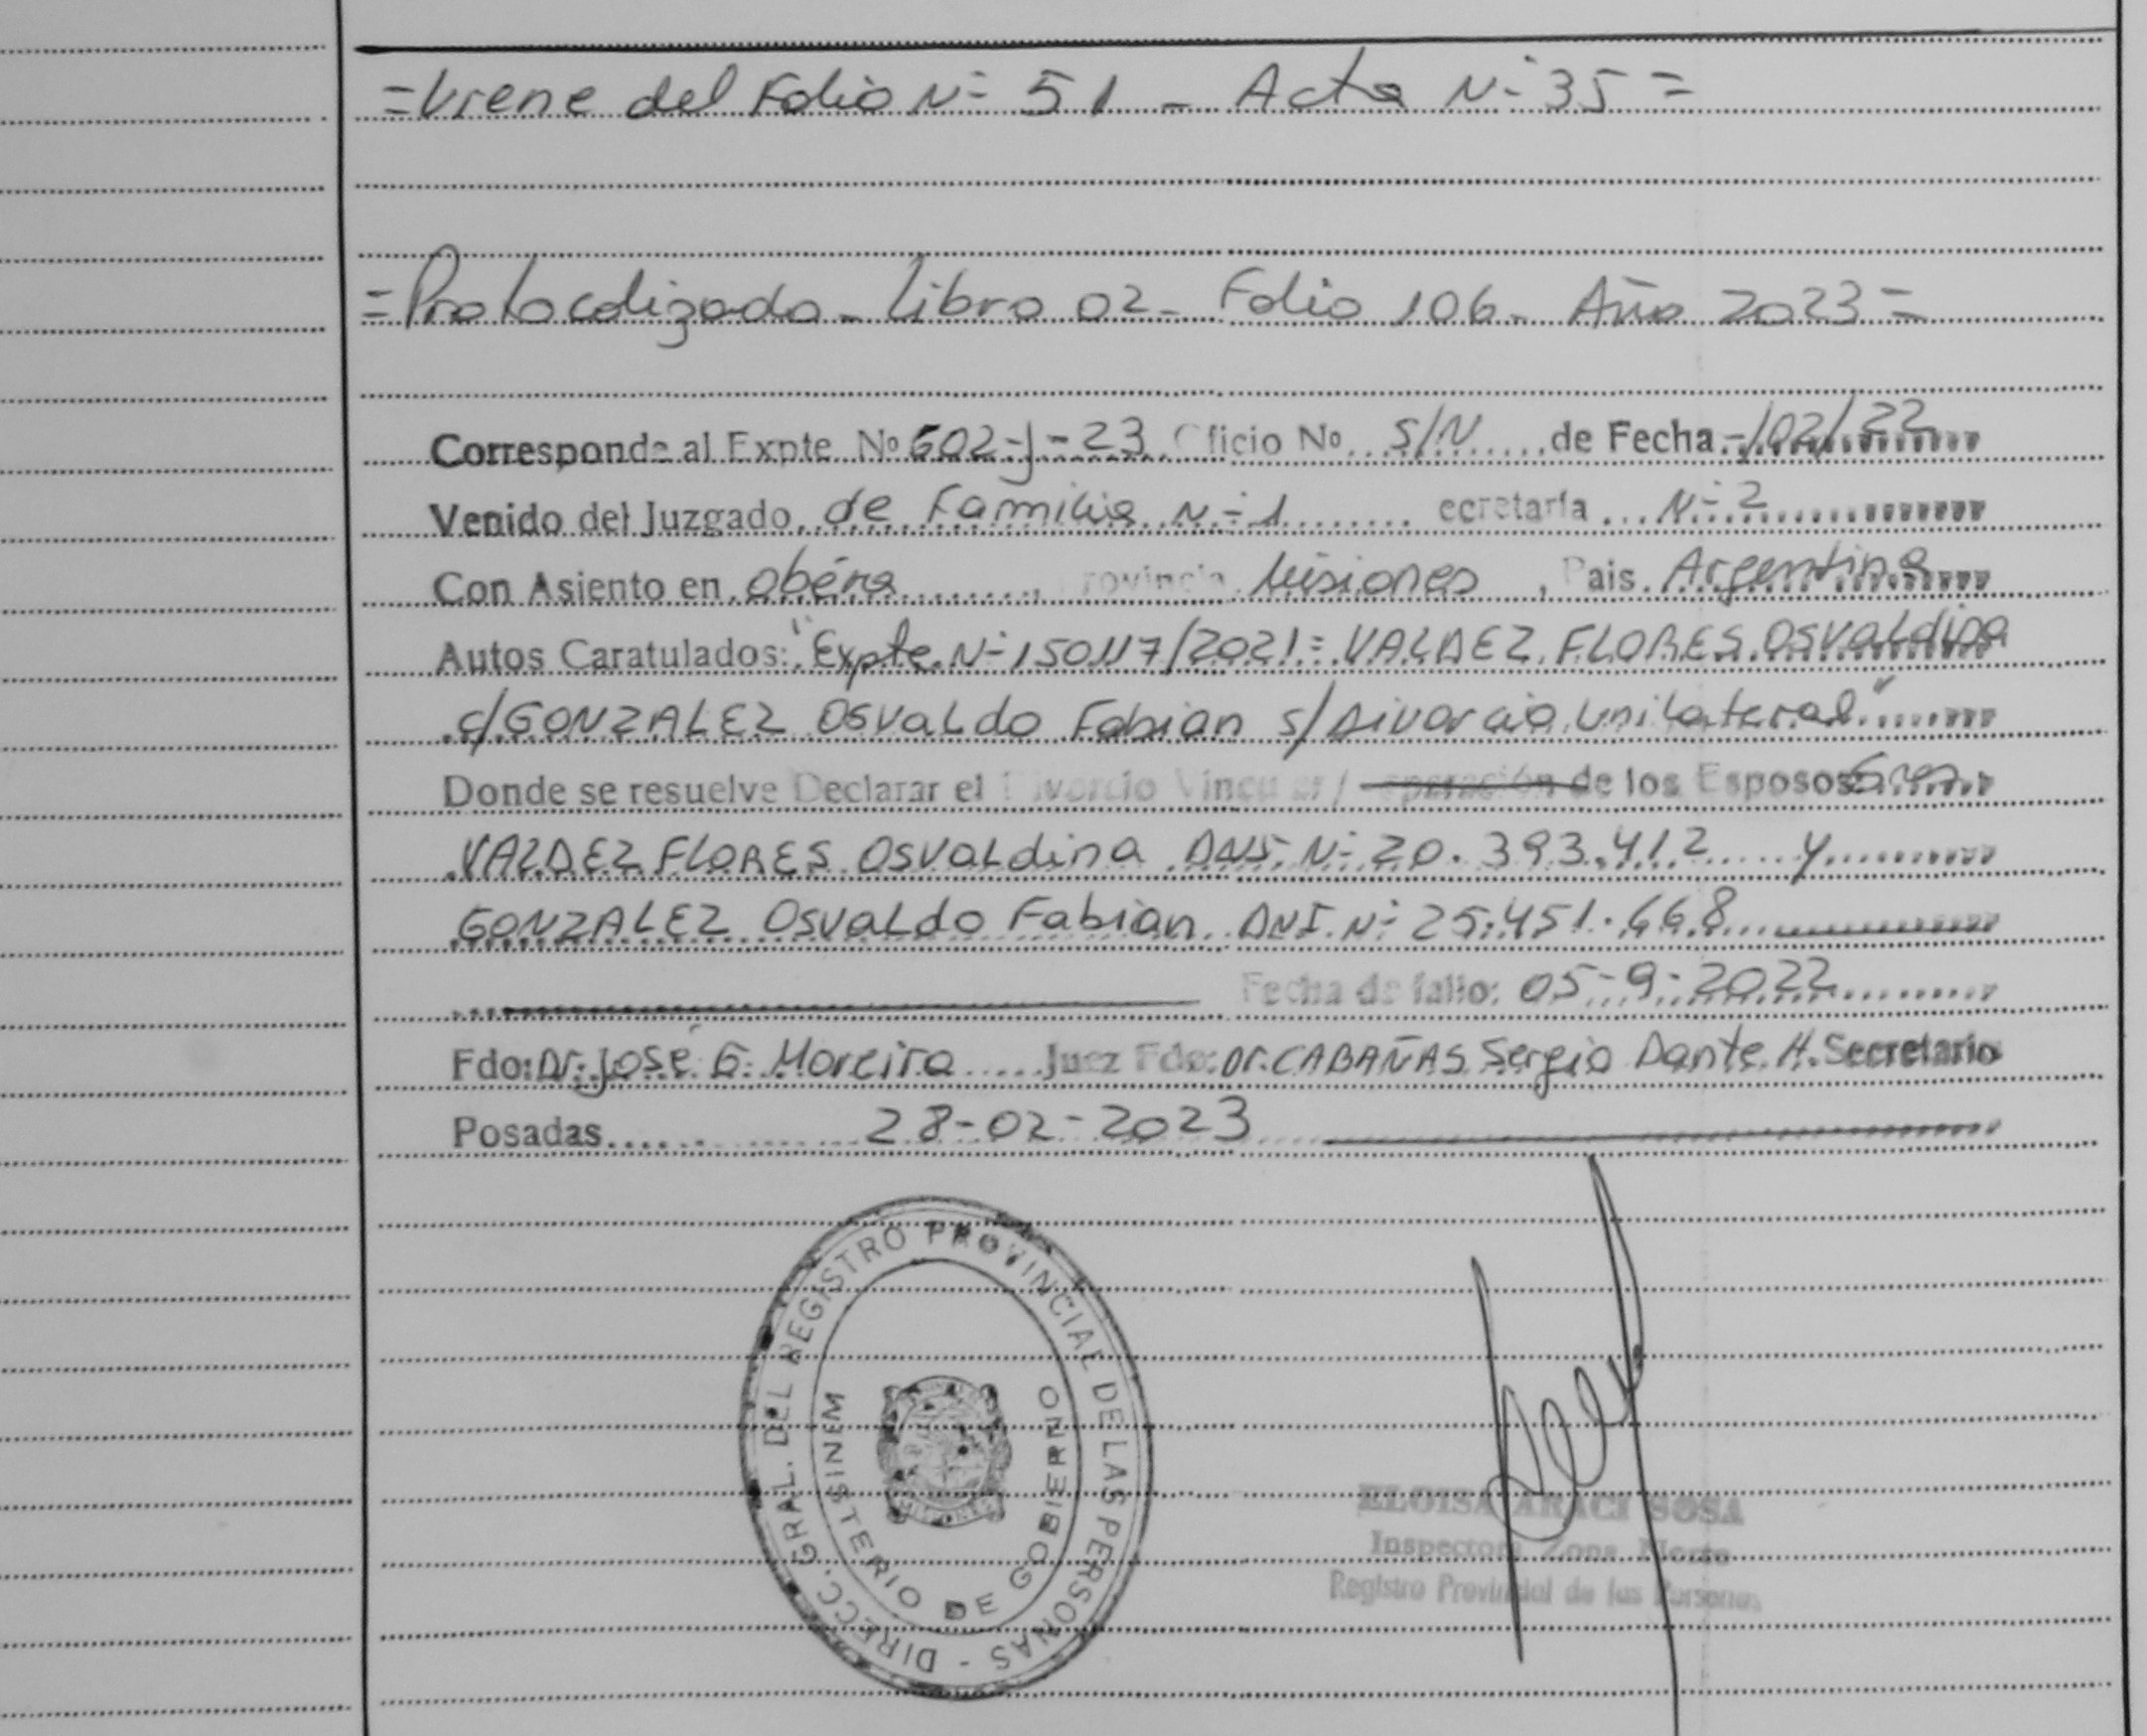 =Viene del Folio N= 51 - Acta N= 35 =
=Protocolizado - Libro 02 - Folio 106 - Año 2023 =
Corresponde al Expte Nº 602-J-23 Oficio Nº S/N de Fecha -/02/22
Venido del Juzgado de Familia N=1 ecretaría N=2
Con Asiento en Oberá, Provincia Misiones, Pais Argentina
Autos Caratulados: "Expte. N=150117/2021= VALDEZ FLORES OSVALdina
c/GONZALEZ OSVALdo Fabian s/Divorcio Unilateral"
Donde se resuelve Declarar el Divorcio Vincular / eparación de los Esposos
VALDEZ FLORES OSVALdina DNI. N= 20.393.412 y
GONZALEZ OSVALdo Fabian DNI. N= 25.451.668
Fecha de fallo: 05-9-2022
Fdo: Dr. José G. Moreira Juez Fdo: Dr. CABAÑAS Sergio Dante H. Secretario
Posadas 28-02-2023
DIRECC. GRAL. DEL REGISTRO PROVINCIAL DE LAS PERSONAS -
MINISTERIO DE GOBIERNO
MISIONES
ELOISA ARACI SOSA
Inspectora Zona Norte
Registro Provincial de las Personas